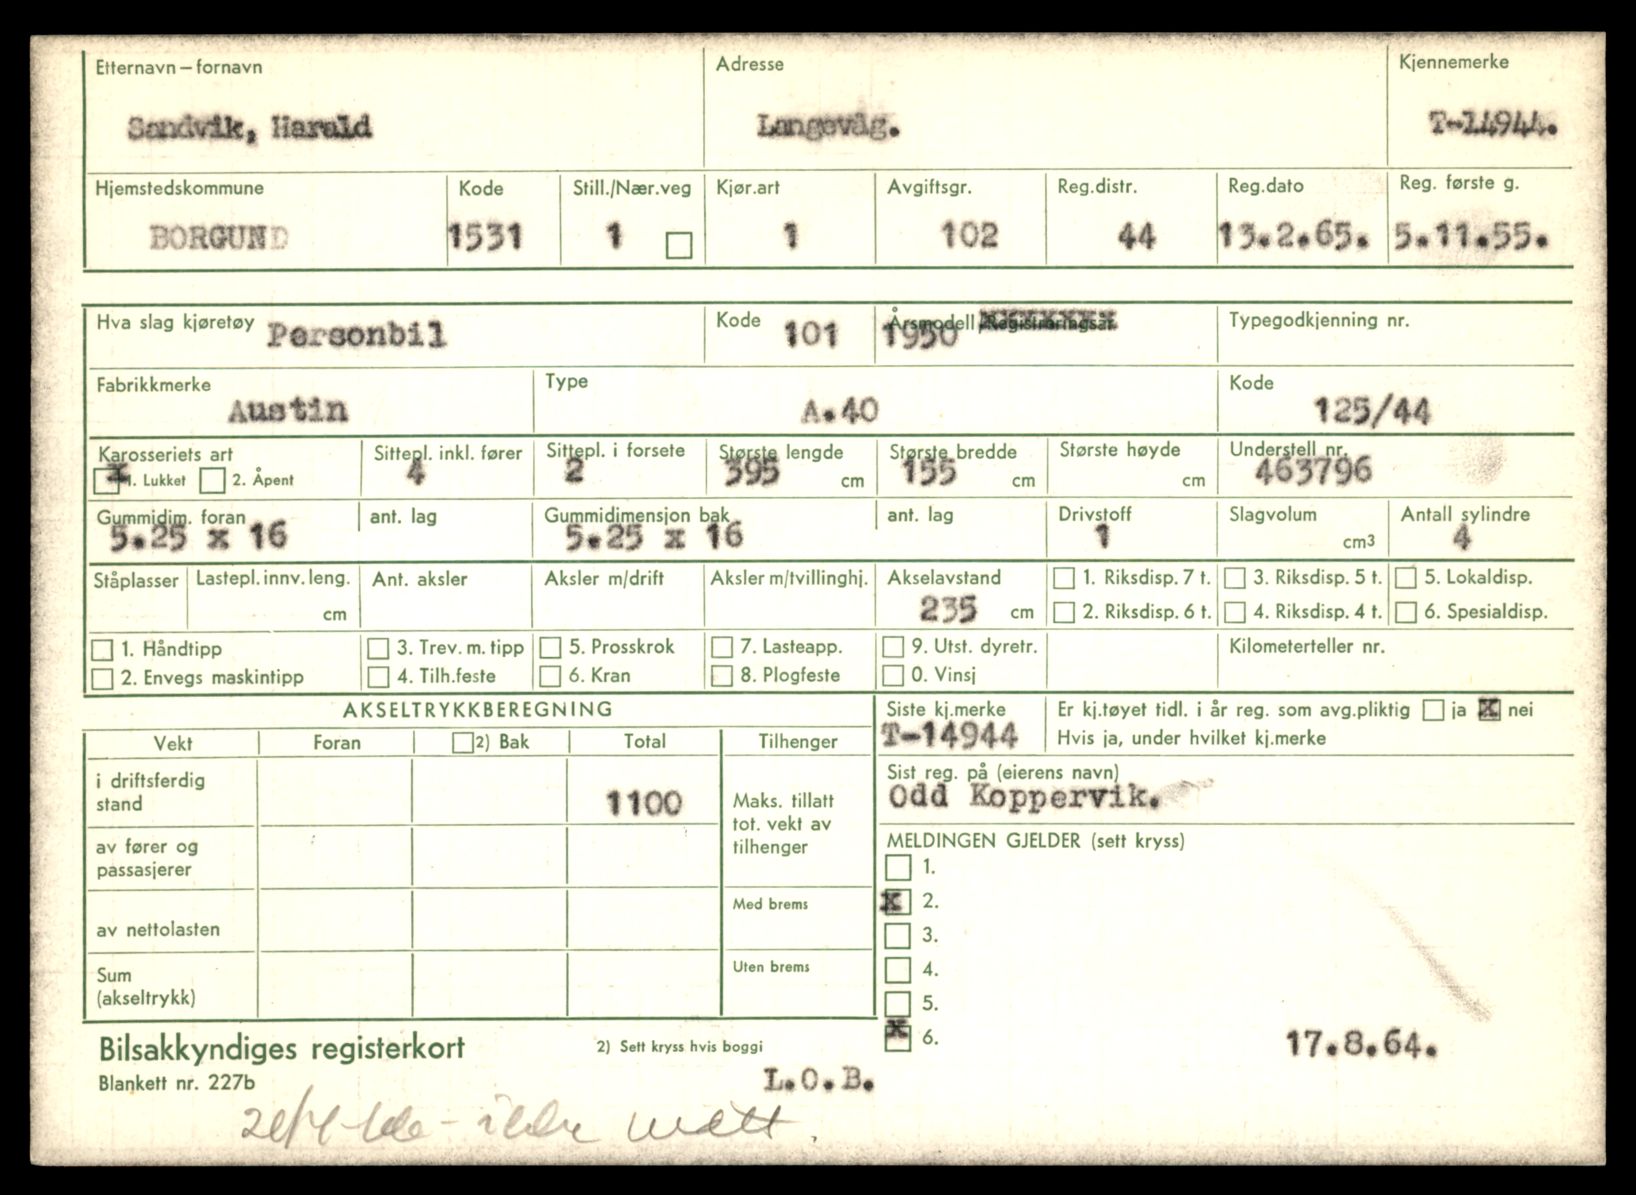 Etternavn – fornavn Adresse Kjennemerke
Sandvik, Harald Langevåg. T-14944.
Hjemstedskommune Kode Still./Nær.veg Kjør.art Avgiftsgr. Reg.distr. Reg.dato Reg. første g.
BORGUND 1531 1 1 102 44 13.2.65. 5.11.55.
Hva slag kjøretøy Personbil Kode 101 Årsmodell/Registreringsår 1950 Typegodkjenning nr.
Fabrikkmerke Type Kode
Austin A.40 125/44
Karosseriets art Sittepl. inkl. fører Sittepl. i forsete Største lengde Største bredde Største høyde Understell nr.
x 1. Lukket 2. Åpent 4 2 395 cm 155 cm cm 463796
Gummidim. foran ant. lag Gummidimensjon bak ant. lag Drivstoff Slagvolum Antall sylindre
5.25 x 16 5.25 x 16 1 cm3 4
Ståplasser Lastepl. innv. leng. Ant. aksler Aksler m/drift Aksler m/tvillinghj. Akselavstand 1. Riksdisp. 7 t. 3. Riksdisp. 5 t. 5. Lokaldisp.
cm 235 cm 2. Riksdisp. 6 t. 4. Riksdisp. 4 t. 6. Spesialdisp.
1. Håndtipp 3. Trev. m. tipp 5. Prosskrok 7. Lasteapp. 9. Utst. dyretr. Kilometerteller nr.
2. Envegs maskintipp 4. Tilh.feste 6. Kran 8. Plogfeste 0. Vinsj
AKSELTRYKKBEREGNING
Vekt Foran 2) Bak Total Tilhenger
i driftsferdig
stand 1100
av fører og
passasjerer
av nettolasten
Sum
(akseltrykk)
Maks. tillatt
tot. vekt av
tilhenger
Med brems
Uten brems
Siste kj.merke Er kj.tøyet tidl. i år reg. som avg.pliktig ja x nei
T-14944 Hvis ja, under hvilket kj.merke
Sist reg. på (eierens navn)
Odd Koppervik.
MELDINGEN GJELDER (sett kryss)
1.
x 2.
3.
4.
5.
x 6. 17.8.64.
Bilsakkyndiges registerkort 2) Sett kryss hvis boggi
Blankett nr. 227b L.O.B.